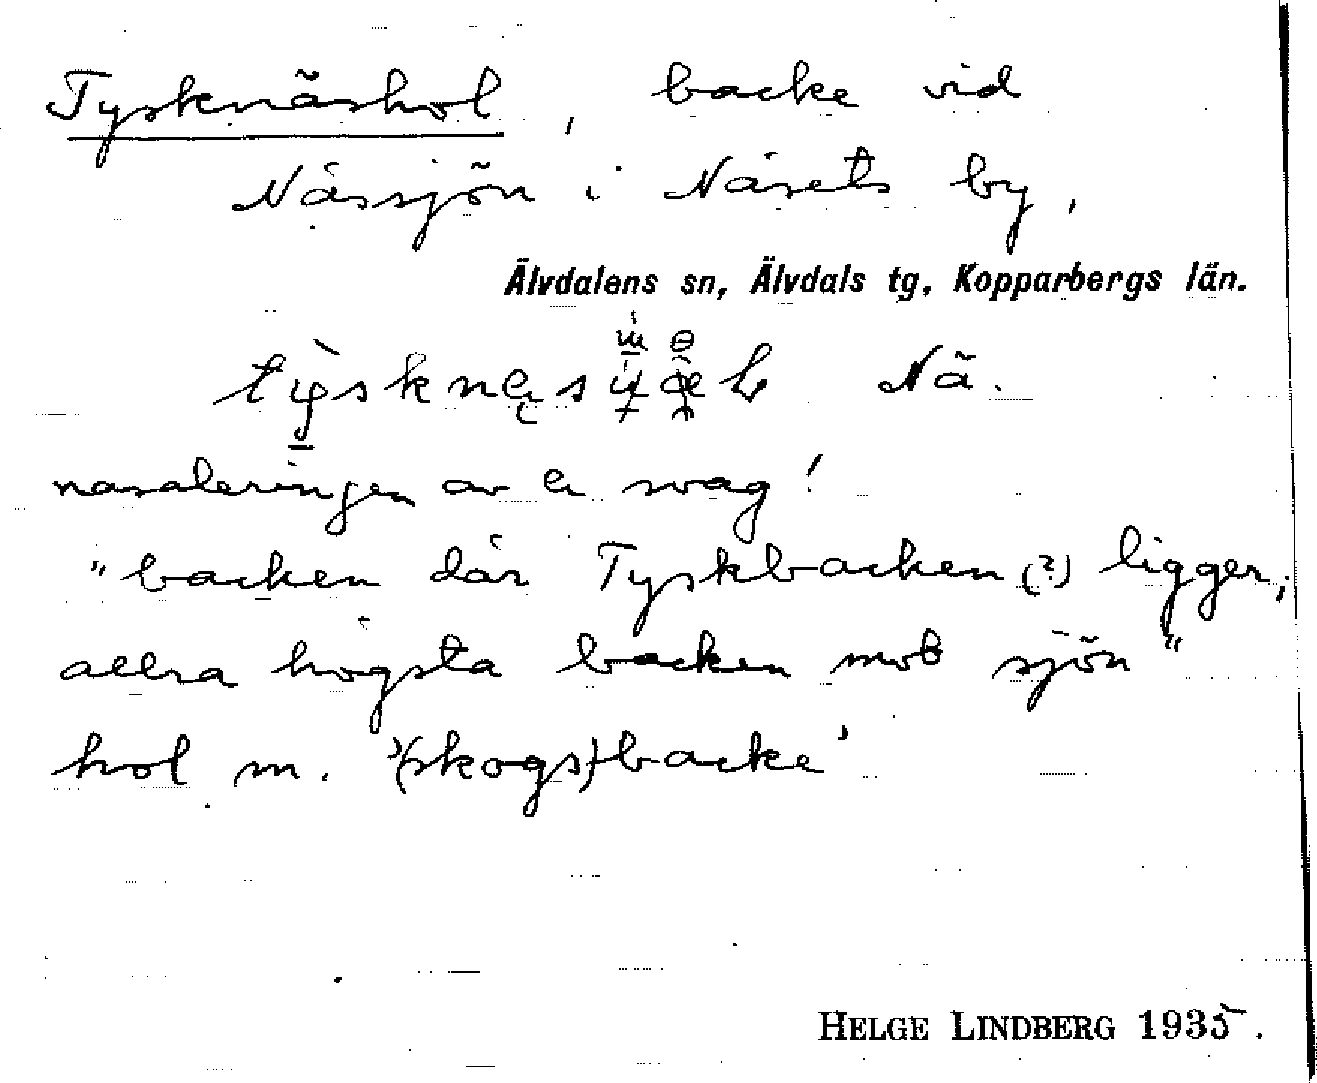 Tysknäshol, backe vid
Nässjön i Näsets by,
Älvdalens sn, Älvdals tg, Kopparbergs län.
Nä.
nasaleringen av e svag!
"backen där Tyskbacken (?) ligger,
allra högsta backen mot sjön"
hol m. '(skogs)backe'
HELGE LINDBERG 1935.